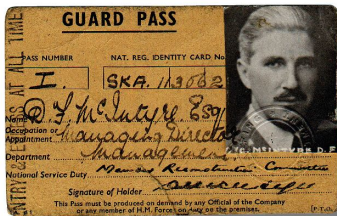 GUARD PASS
PASS NUMBER
NAT. REG. IDENTITY CARD No
I.
SKA. 113062
Name D. F. McIntyre Esq
Occupation or
Appointment Managing Director
Department Management
National Service Duty
Signature of Holder
This Pass must be produced on demand by any Official of the Company
or any member of H.M. Forces on duty on the premises. [P.T.O.
AT ALL TIME
MCINTYRE D.F